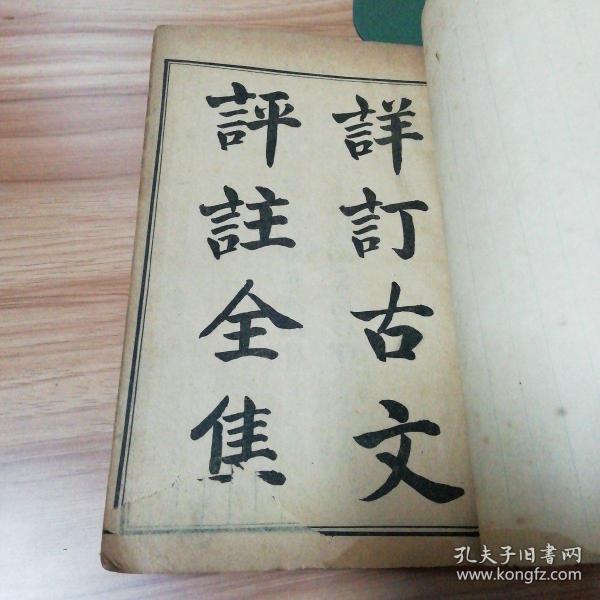 詳訂古文
評註全集
孔夫子旧書网
www.kongfz.com